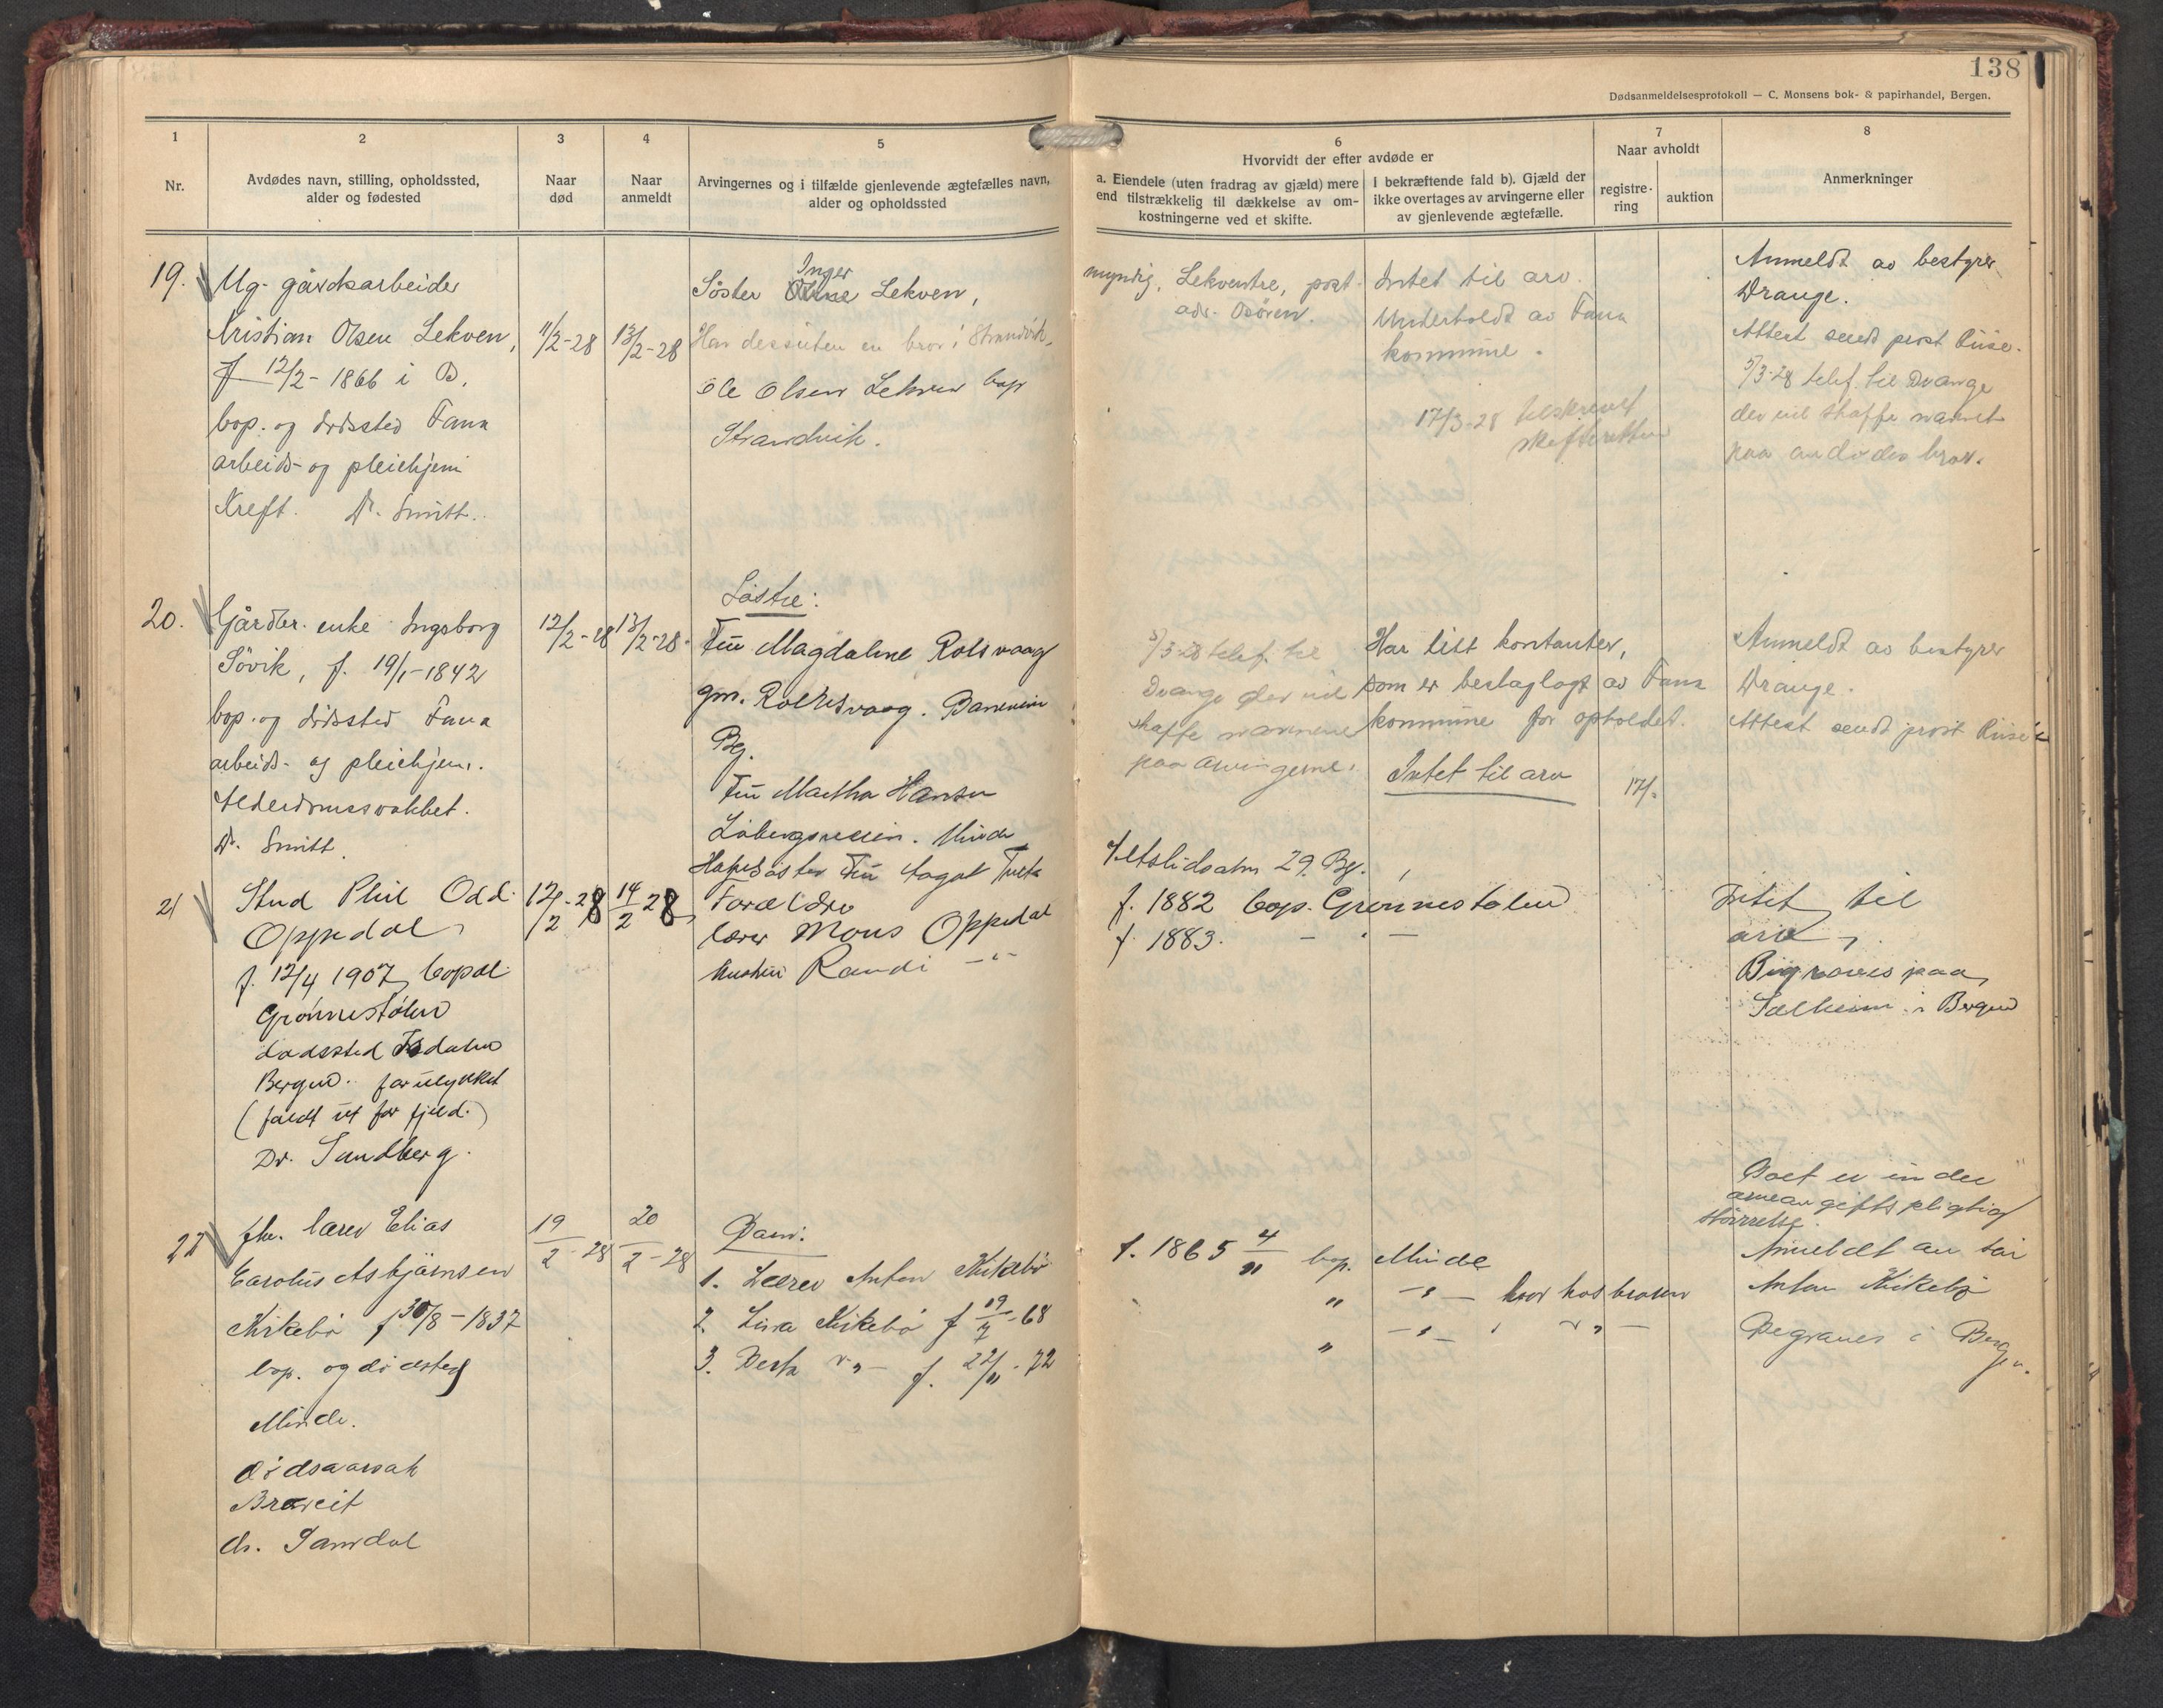 138
Dødsanmeldelsesprotokoll — C. Monsens bok- & papirhandel, Bergen.
1
2
3
4
5
6
7
8
Nr.
Avdødes navn, stilling, opholdssted,
alder og fødested
Naar
død
Naar
anmeldt
Arvingernes og i tilfælde gjenlevende ægtefælles navn,
alder og opholdssted
Hvorvidt der efter avdøde er
a. Eiendele (uten fradrag av gjæld) mere
end tilstrækkelig til dækkelse av om-
kostningerne ved et skifte.
I bekræftende fald b). Gjæld der
ikke overtages av arvingerne eller
av gjenlevende ægtefælle.
Naar avholdt
registre-
ring
auktion
Anmerkninger
19.
Ug. gårdsarbeider
Kristian Olsen Lekven,
f 12/2-1866 i O.
bop. og dødssted Fana
arbeids- og pleiehjem
Kreft. Dr. Smitt.
11/2-28
13/2-28
Inger
Söster Lekven,
Har desuten en bror i Strandvik,
Ole Olsen Lekven bop
Strandvik.
myndig, Lekventre, post-
adr. Osören.
Intet til arv.
Underholdt av Fana
kommune.
17/3-28 tilskrevet
skifteretten
Anmeldt av bestyrer
Drange.
Attest sendt prost Riise.
5/3-28 telef. til Drange
der vil skaffe navnet
paa avdödes bror.
20.
Gårdbr. enke Ingeborg
Sövik, f. 19/1-1842
bop. og dödssted Fana
arbeids- og pleiehjem.
Alderdomssvakhet.
Dr. Smitt
12/2-28
13/2-28
Söstre:
Fru Magdalene Rolsvaag
gm. Rolfsvaag.
Bg.
Fru Martha Hansen
Minde
Halvsöster Fru Aagot
5/3-28 telef. til
Drange der vil
skaffe navnene
paa arvingerne.
29. Bg.
Har litt kontanter,
som er beslaglagt av Fana
kommune for opholdet.
Intet til arv
17/.
Anmeldt av bestyrer
Drange.
Attest sendt prost Riise
21
Stud Phil Odd
Oppedal
f. 12/4 1907 bopæl
Grønnestølen
dødssted Isdalen
Bergen. forulykket
(faldt ut for fjeld.)
Dr. Sundberg.
12/2-28
14/2 28
Forældre
lærer Mons Oppedal
Hustru Randi -"-
f. 1882 bop. Grønnestølen
f. 1883. - " -
Intet til
arv
Begraves paa
Solheim i Bergen
22
fhv. lærer Elias
Carolus Asbjørnsen
Kirkebø f 30/8-1837
bop. og dödsted
Minde.
dödsaarsak
dr. Samdal
19/2-28
20/2-28
Barn:
1. Lærer Anton Kirkebø
2. Lina Kirkebø f 19/7-68
3. Berta -"- f. 22/11-72
f. 1865 4/11 bop. Minde
" -"- hver hos broren
" -"- -"-
Boet er under
arveavgiftspligtig
störrelse.
Anmeldt av sön
Anton Kirkebø
Begraves i Bergen.